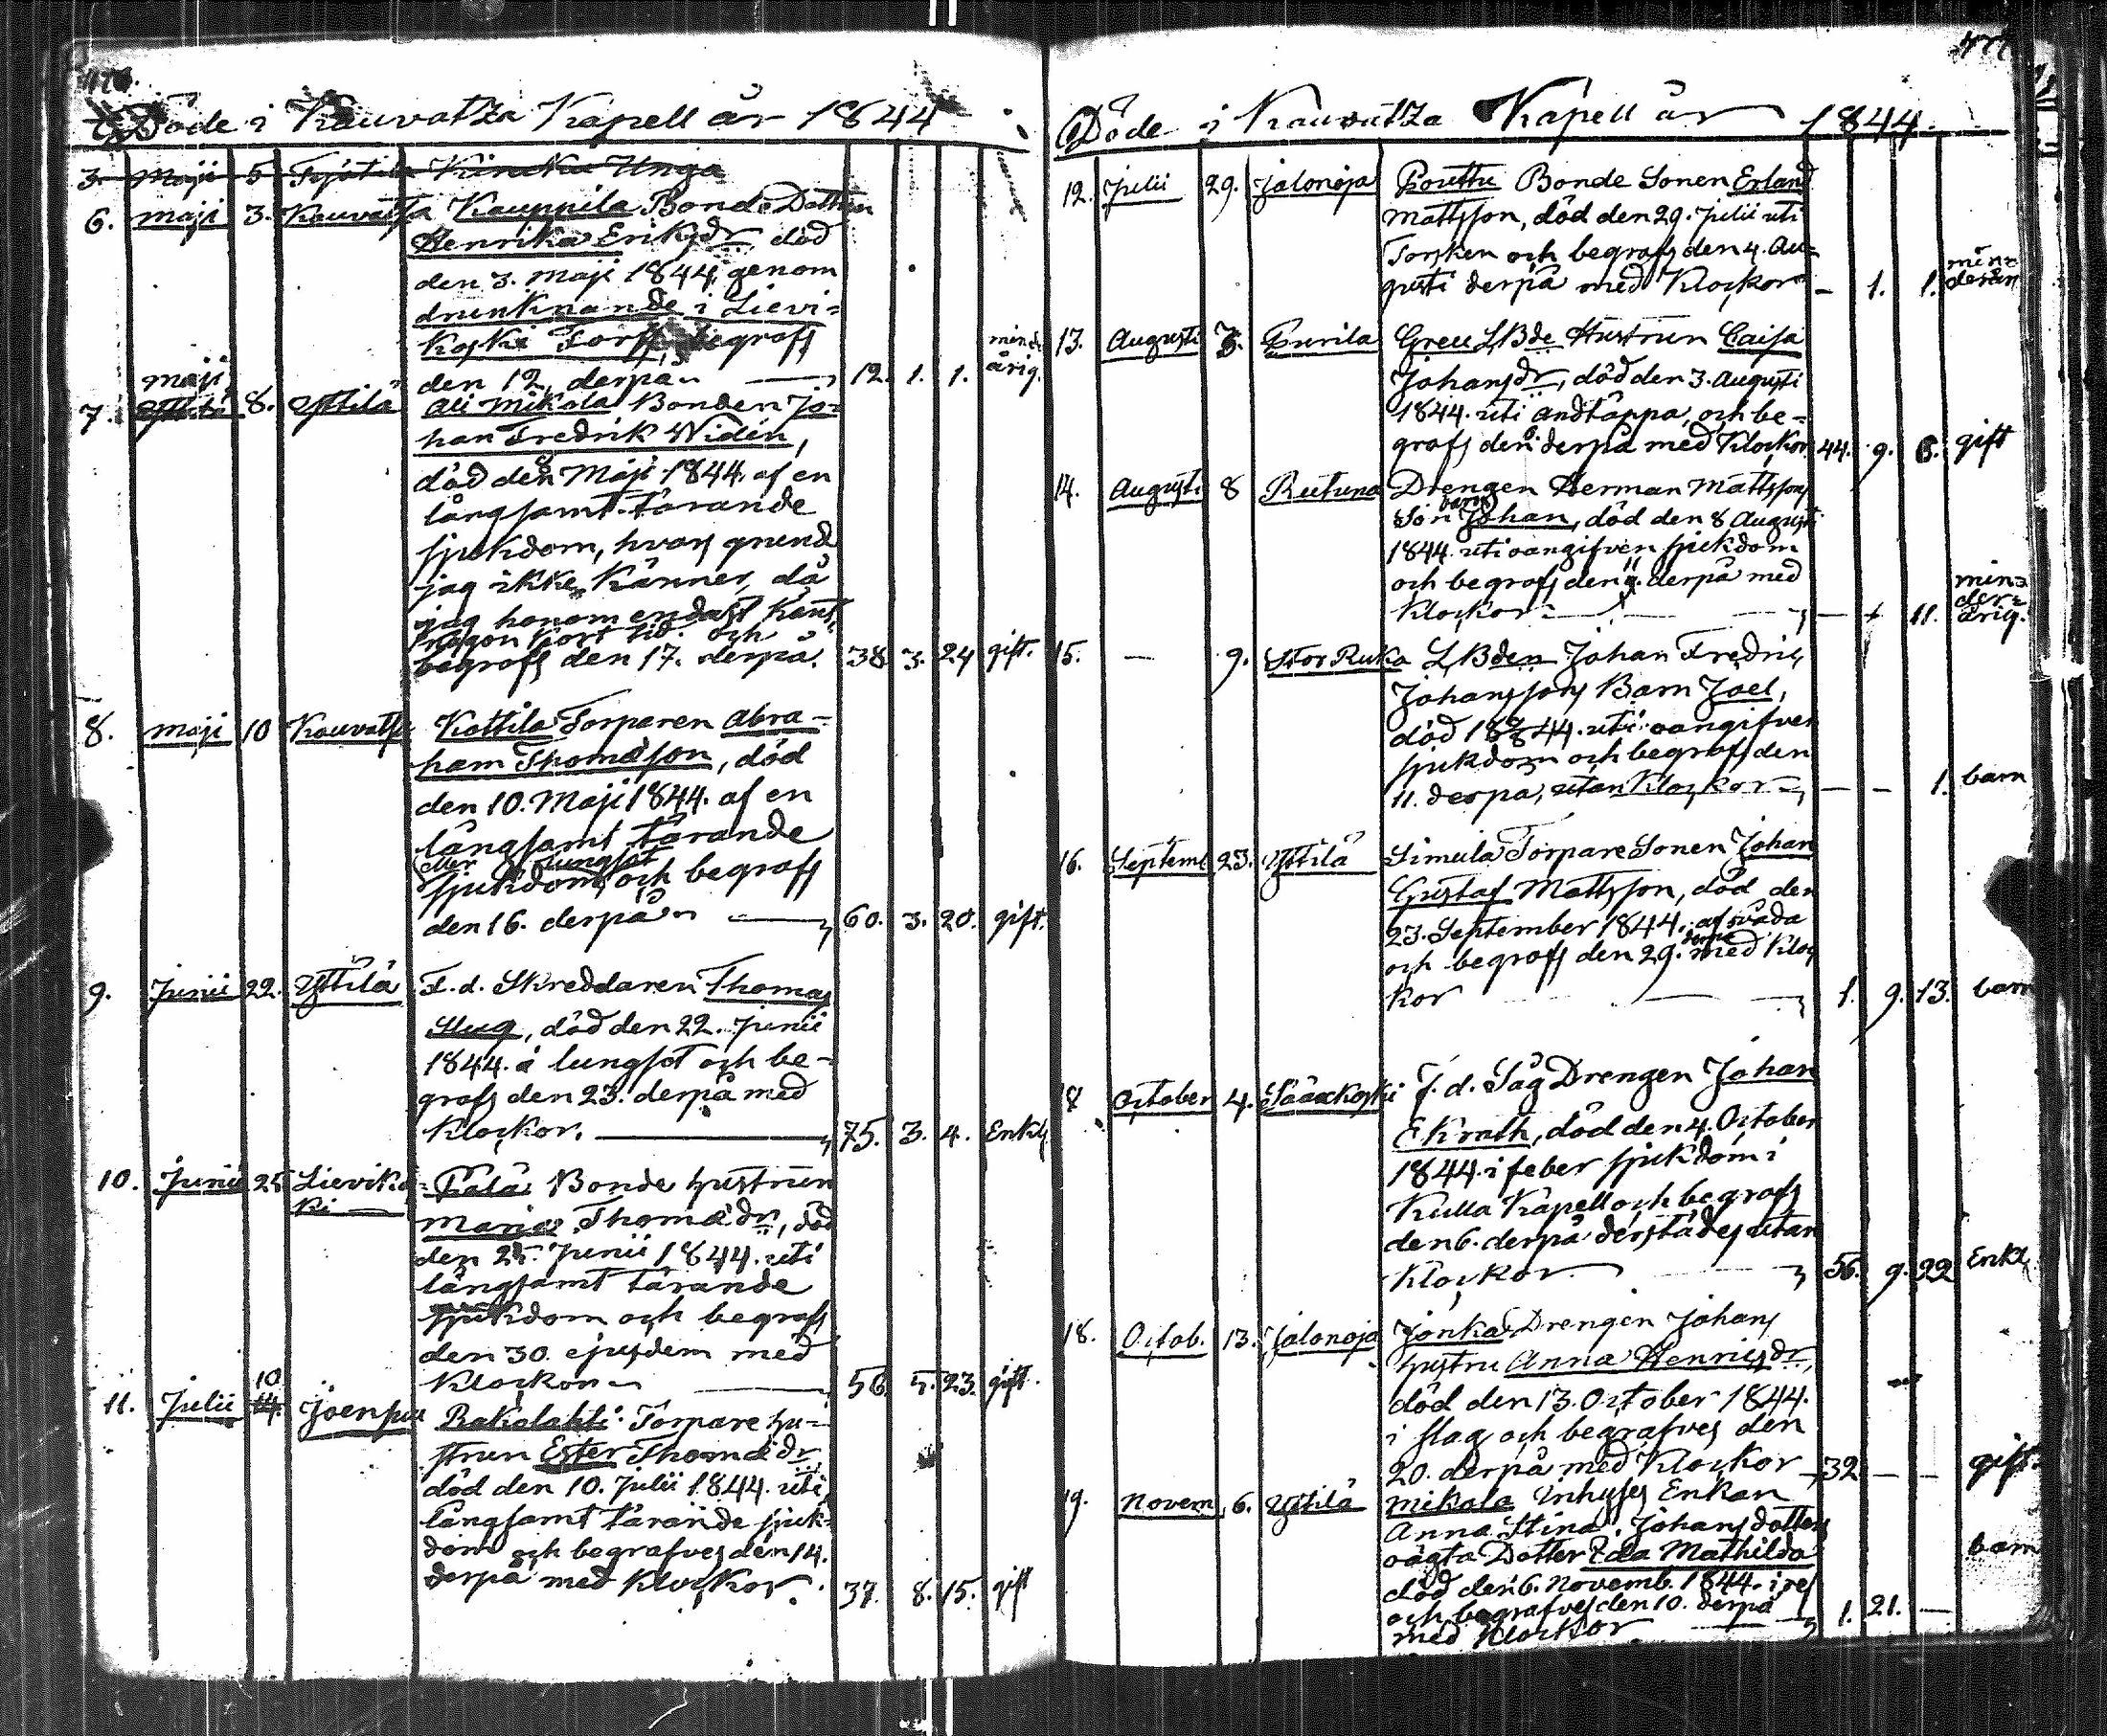 476.
Döde i Kauvatza Kapell år 1844
3. Maji 5
6. Maji 3. Kauvatsa Kauppila Bonde Dottren
Henrika Eriksdr, död
den 3. Maji 1844, genom
drunknande i Lievi-
koski Fors, begrofs
den 12. derpå 12. 1. 1. minde
årig.
7. Maji 8. Yttilä Ali Mikola Bonden Jo-
han Fredrik Widén,
död den 8 Maji 1844. af en
långsamt tärande
sjukdom, hvars grund
jag ikke känner, då
jag honom endast känt
någon kort tid. och
begrofs den 17. derpå. 38 3. 24 gift.
8. Maji 10 Kauvatsa Kottila Torparen Abra-
ham Thomasson, död
den 10. Maji 1844. af en
långsamt tärande
eller lungsot
sjukdom, och begrofs
den 16. derpå 60. 3. 20. gift.
9. Junii 22. Yttilä F. d. Skreddaren Thomas
Slug, död den 22. Junii
1844. å lungsot och be-
grofs den 23. derpå med
Klockor. 75. 3. 4. Enkl
10. Junii 25 Lieviko-
ki Bonde hustrun
Maria Thomædr, död
den 25. Junii 1844. uti
långsamt tärande
sjukdom och begrofs
den 30. ejusdem med
Klockor 56. 5. 23. gift.
11. Julii 10 14. Joenpuu Rakolahti Torpare hu-
strun Ester Thomædr
död den 10. Julii 1844. uti
långsamt tärande sjuk-
dom och begrafves den 14.
derpå med Klockor. 37. 8. 15. gift
477
Döde i Kauvatza Kapell år 1844.
12. Julii 29. Jalonoja Pouttu Bonde Sonen Erland
Mattsson, död den 29. Julii uti
Torsken och begrofs den 4. Au-
gusti derpå med Klockor – 1. 1. min-
derår
13. Augusti 3. Purila Greu LBde Hustrun Caisa
Johansdr, död den 3. Augusti
1844. uti andtäppa, och be-
grofs den 6. derpå med Klockor 44. 9. 6. gift
14. Augusti 8 Drengen Herman Mattssons
Son barn Johan, död den 8 Augusti
1844. uti oangifven sjukdom
och begrofs den 11. derpå med
Klockor 11. min-
der-
årig.
15. — 9. Stor Ruka LBden Johan Fredrik
Johanssons Barn Joel,
död 18 9/8 44. uti oangifven
sjukdom och begrofs den
11. derpå, utan Klockor – – 1. barn
16. Septemb 23. Yttilä Simula Torpare Sonen Johan
Gustaf Mattsson, död den
23. September 1844. af våda
och begrofs den 29. derpå med Kloc
kor 1. 9. 13. barn
18 October 4. Sääxkoski F. d. Såg Drengen Johan
Ekroth, död den 4. October
1844. i feber sjukdom i
Kulla Kapell och begrofs
den 6. derpå derstädes utan
Klockor 56. 9. 22 Enkl
18. Octob. 13. Jalonoja Jonka Drengen Johans
hustru Anna Henricsdr,
död den 13. October 1844.
i slag och begrafves den
20. derpå med Klockor 32 – – gift.
19. Novem 6. Yttilä Mikola Inhyses Enkan
Anna Stina Johansdotters
oägta Dotter Eda Mathilda
död den 6. Novemb. 1844. i
och begrafves den 10. derpå
med Klockor 1. 21. — barn